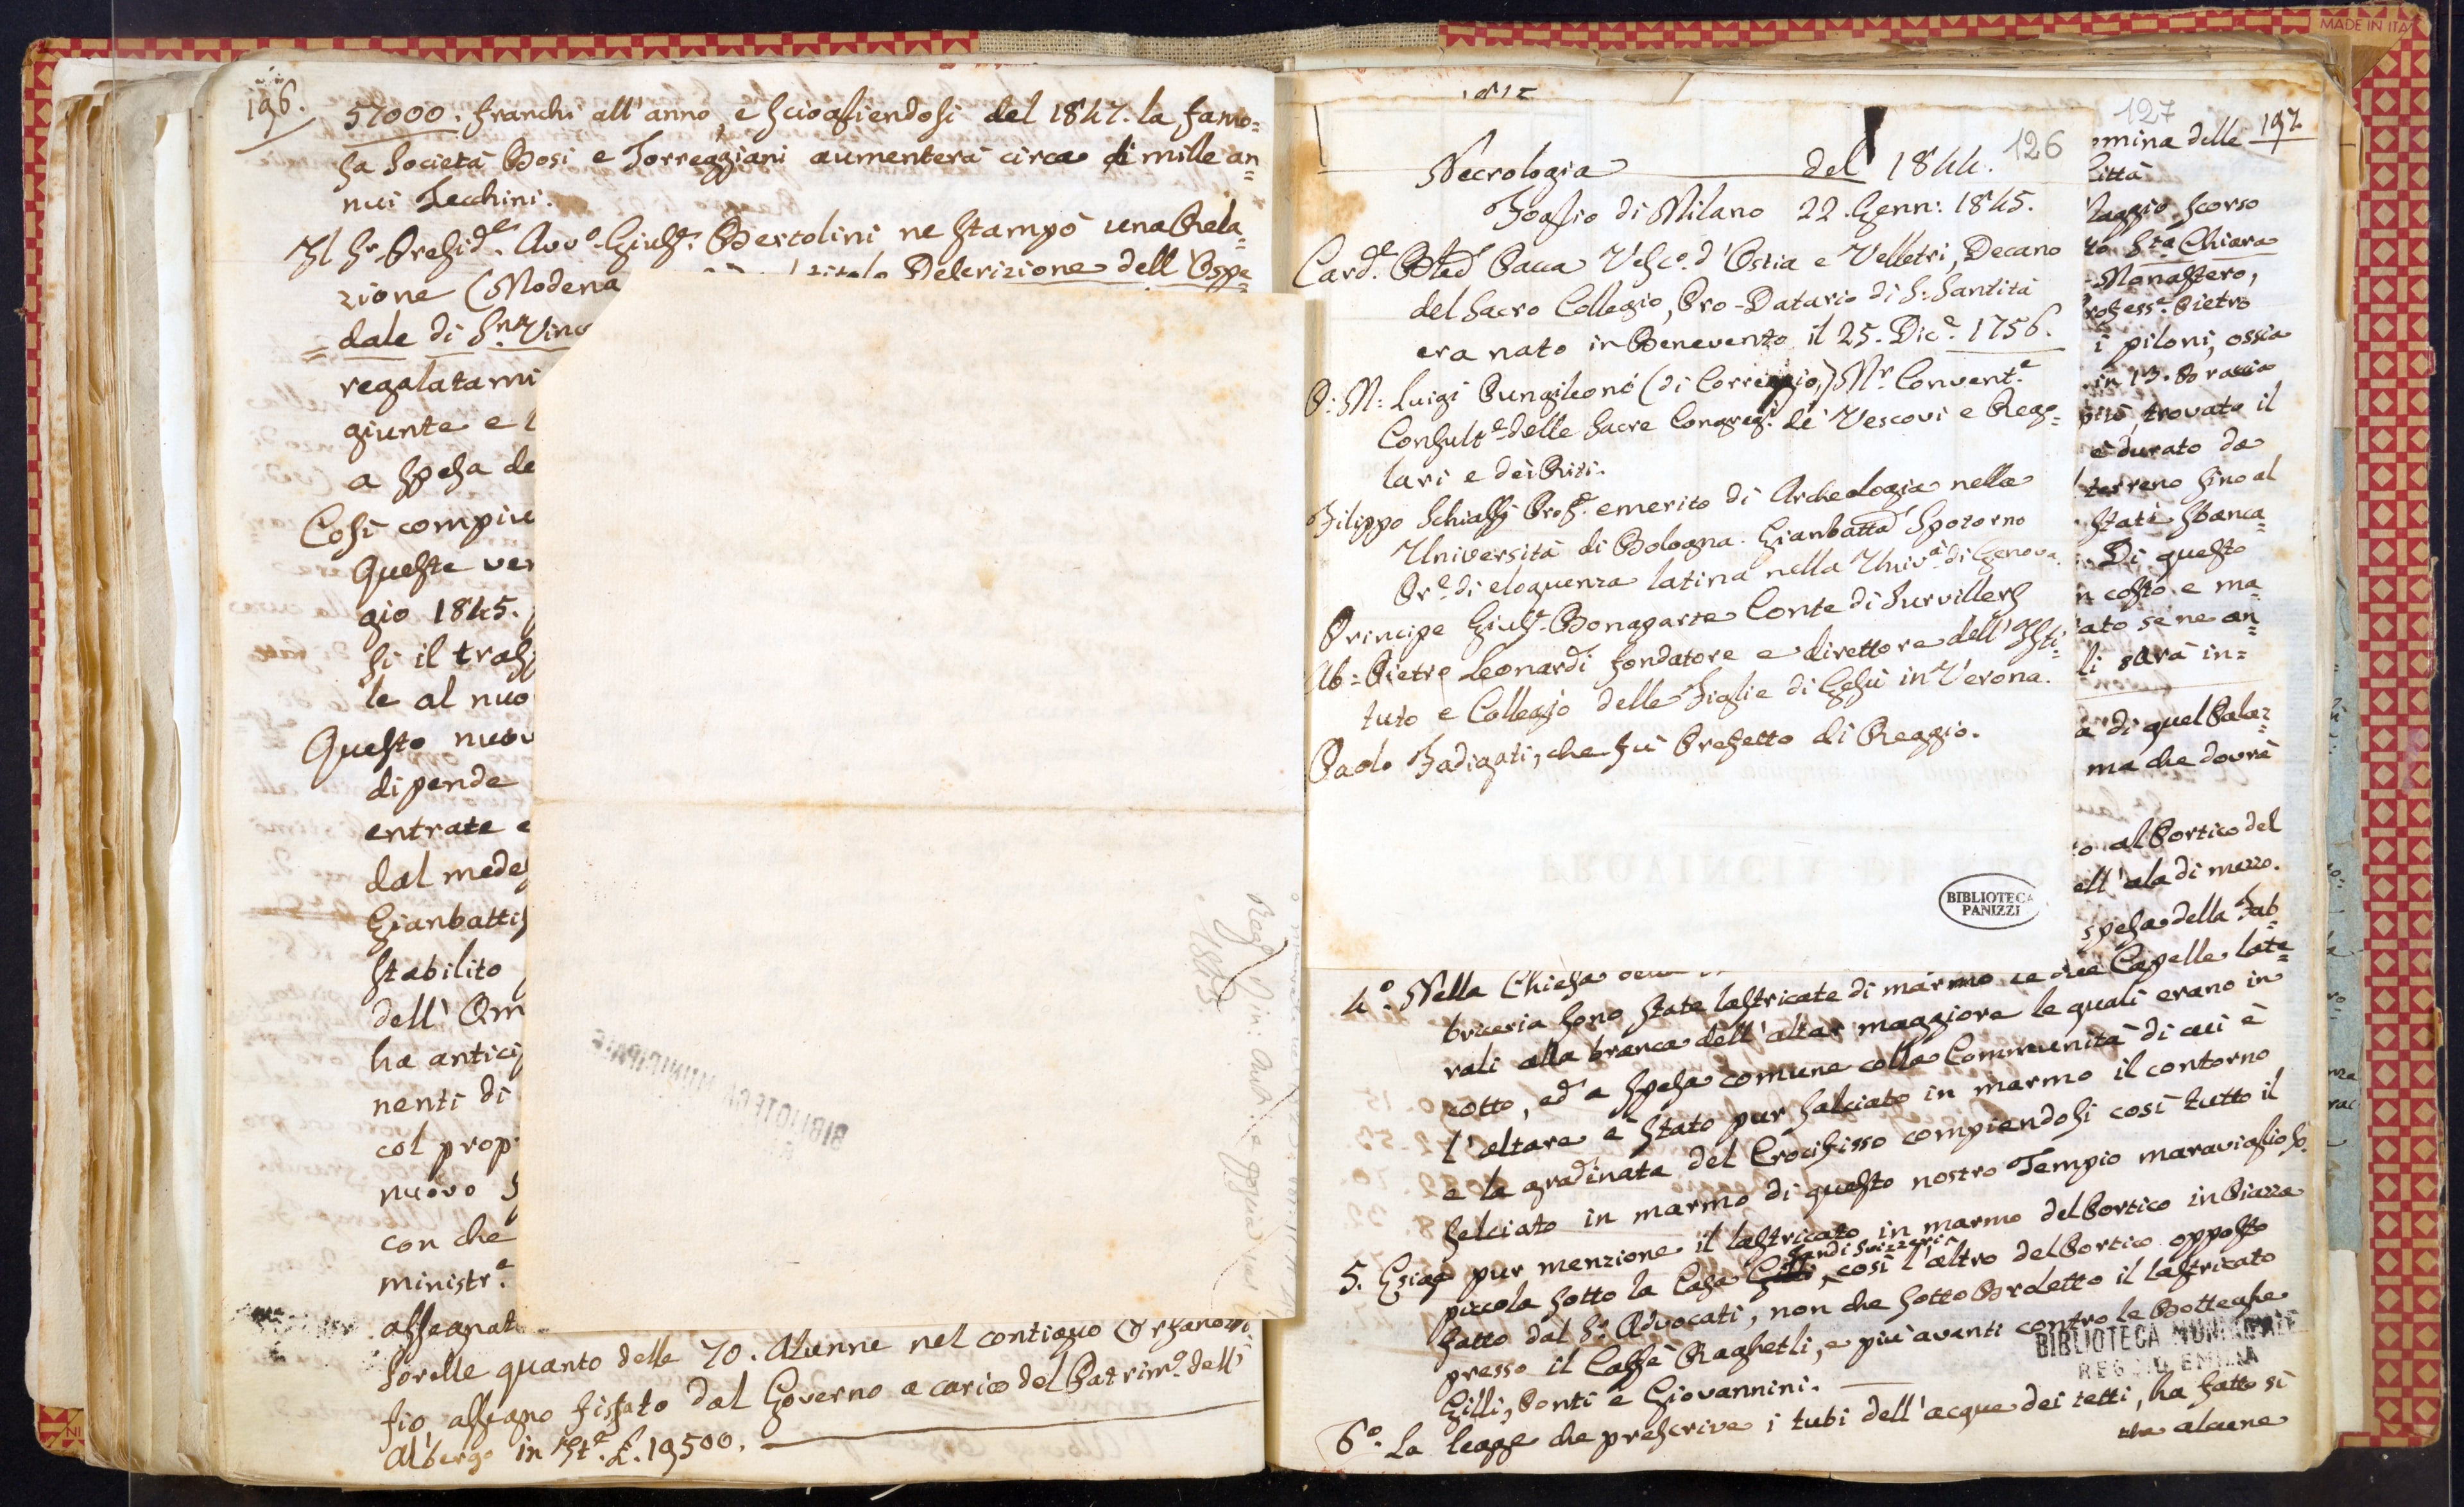 196.
57000. franchi all'anno, e sciogliendosi del 1847. la famo=
sa Società Bosi e Torreggiani aumenterà circa di mille an=
nui Zecchini.
Il Sr Presid.e Avv.o Giuse. Bertolini ne stampò una Rela=
zione (Modena
titolo Descrizione dell'Ospe=
= dale di Sn. Vinc
regalatami
giunte e
a spesa de
Così compiu
Queste ve
gio 1845.
si il tras
le al nuo
Questo nuov
dipende
entrate e
dal medes
Gianbattis
stabilito
dell'Om
ha antici
nenti di
col prop
nuovo s
con che
ministr.e
assegnat
sorelle quanto delle 70. Alunne nel contiguo Orfano=
fio, assegno fissato dal Governo a carico del Patrim.o dell'
Albergo in St.e £. 19500.
BIBLIOTECA MUNICIPALE
1845
126
Necrologia del 1844.
Foglio di Milano 22. Genn: 1845.
Card.e Bted Pacca Vesc.o d'Ostia e Velletri, Decano
del Sacro Collegio, Pro-Datario di S: Santità
era nato in Benevento il 25. Dic.e 1756.
P: M: Luigi Pungileoni (di Correggio,) Mr. Convent.e
Consult.e delle Sacre Congreg.i de' Vescovi e Rego=
lari e dei Riti.
Filippo Schiassi Prof.e emerito di Archeologia nella
Università di Bologna. Gianbatta Spotorno
Pr.e di eloquenza latina nella Univ.à di Genova.
Principe Giuse. Bonaparte Conte di Survillers
Ab= Pietro Leonardi fondatore e direttore dell'Isti=
tuto e Collegio delle Figlie di Gesù in Verona.
Paolo Fadigati, che fù Prefetto di Reggio.
PROVINCIA DI
BIBLIOTECA
PANIZZI
127
197
omina delle
Città
Maggio scorso
Sta. Chiara
Monastero,
Profess.e Pietro
i piloni, ossia
in 13.
trovato il
è durato da
terreno sino al
stati sbanca=
Di questo
n costo e ma=
ato se ne an=
li sarà in=
a di quel Palaz=
ma che dovrè
o al Portico del
ell'ala di mezzo.
spesa della Fab=
4.o Nella Chiesa
briceria sono state lastricate di marmo le due Capelle late=
rali alla branca dell'altar maggiore le quali erano in
cotto, ed a spesa comune colla Communità di cui è
l'altare è stato pur salciato in marmo il contorno
e la gradinata del Crocifisso compiendosi così tutto il
selciato in marmo di questo nostro Tempio maraviglioso.
5. Esige pur menzione il lastricato in marmo del Portico in Piazza
piccola sotto la Casa così l'altro del Portico opposto
fatto dal Sr. Advocati, non che sotto Broletto il lastricato
presso il Caffè Raghetli, e più avanti contro le Botteghe
Gilli, Ponti e Giovannini.
BIBLIOTECA MUNICIPALE
REGGIO EMILIA
6.o La legge che prescrive i tubi dell'acque dei tetti, ha fatto sì
che alcune
MADE IN ITA